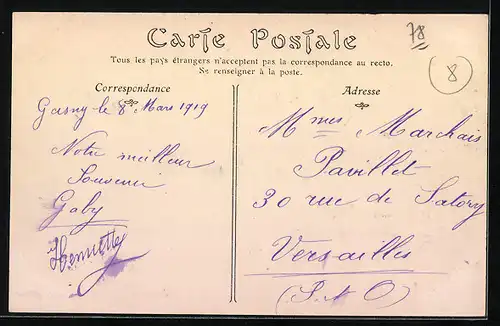 Carte Postale
Tous les pays étrangers n'acceptent pas la correspondance au recto.
Se renseigner à la poste.
78
8
Correspondance
Gasny le 8 Mars 1919
Notre meilleur
Souvenir
Gaby
Henriette
Adresse
Mmes Marchais
Pavillet
30 rue de Satory
Versailles
(S. et O)